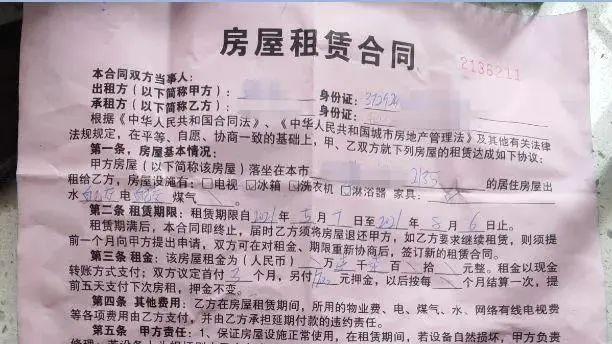 房屋租赁合同
2136211
本合同双方当事人：
出租方（以下简称甲方）： 身份证：
承租方（以下简称乙方）： 身份证：
根据《中华人民共和国合同法》、《中华人民共和国城市房地产管理法》及其他有关法律
法规规定，在平等、自愿、协商一致的基础上，甲、乙双方就下列房屋的租赁达成如下协议：
第一条，房屋基本情况：
甲方房屋（以下简称该房屋）落坐在本市 的居住房屋出
租给乙方，房屋设施有：□电视 □冰箱 □洗衣机 □淋浴器 家具：
水 电 煤气 。
第二条 租赁期限：租赁期限自2021年5月7日至2021年8月6日止。
租赁期满后，本合同即终止，届时乙方须将房屋退还甲方，如乙方要求继续租赁，则须提
前一个月向甲方提出申请，双方可在对租金、期限重新协商后，签订新的租赁合同。
第三条 租金：该房屋租金为（人民币） 万 仟 百 拾 元整。租金以现金
转账方式支付；双方议定首付 个月，另付 元押金，以后按每 个月结算一次，提
前五天支付下次房租，押金不变。
第四条 其他费用：乙方在房屋租赁期间，所用的物业费、电、煤气、水、网络有线电视费
等各项费用由乙方支付，并由乙方承担延期付款的违约责任。
第五条 甲方责任：1、保证房屋设施正常使用，在租赁期间，若设备自然损坏，甲方负责